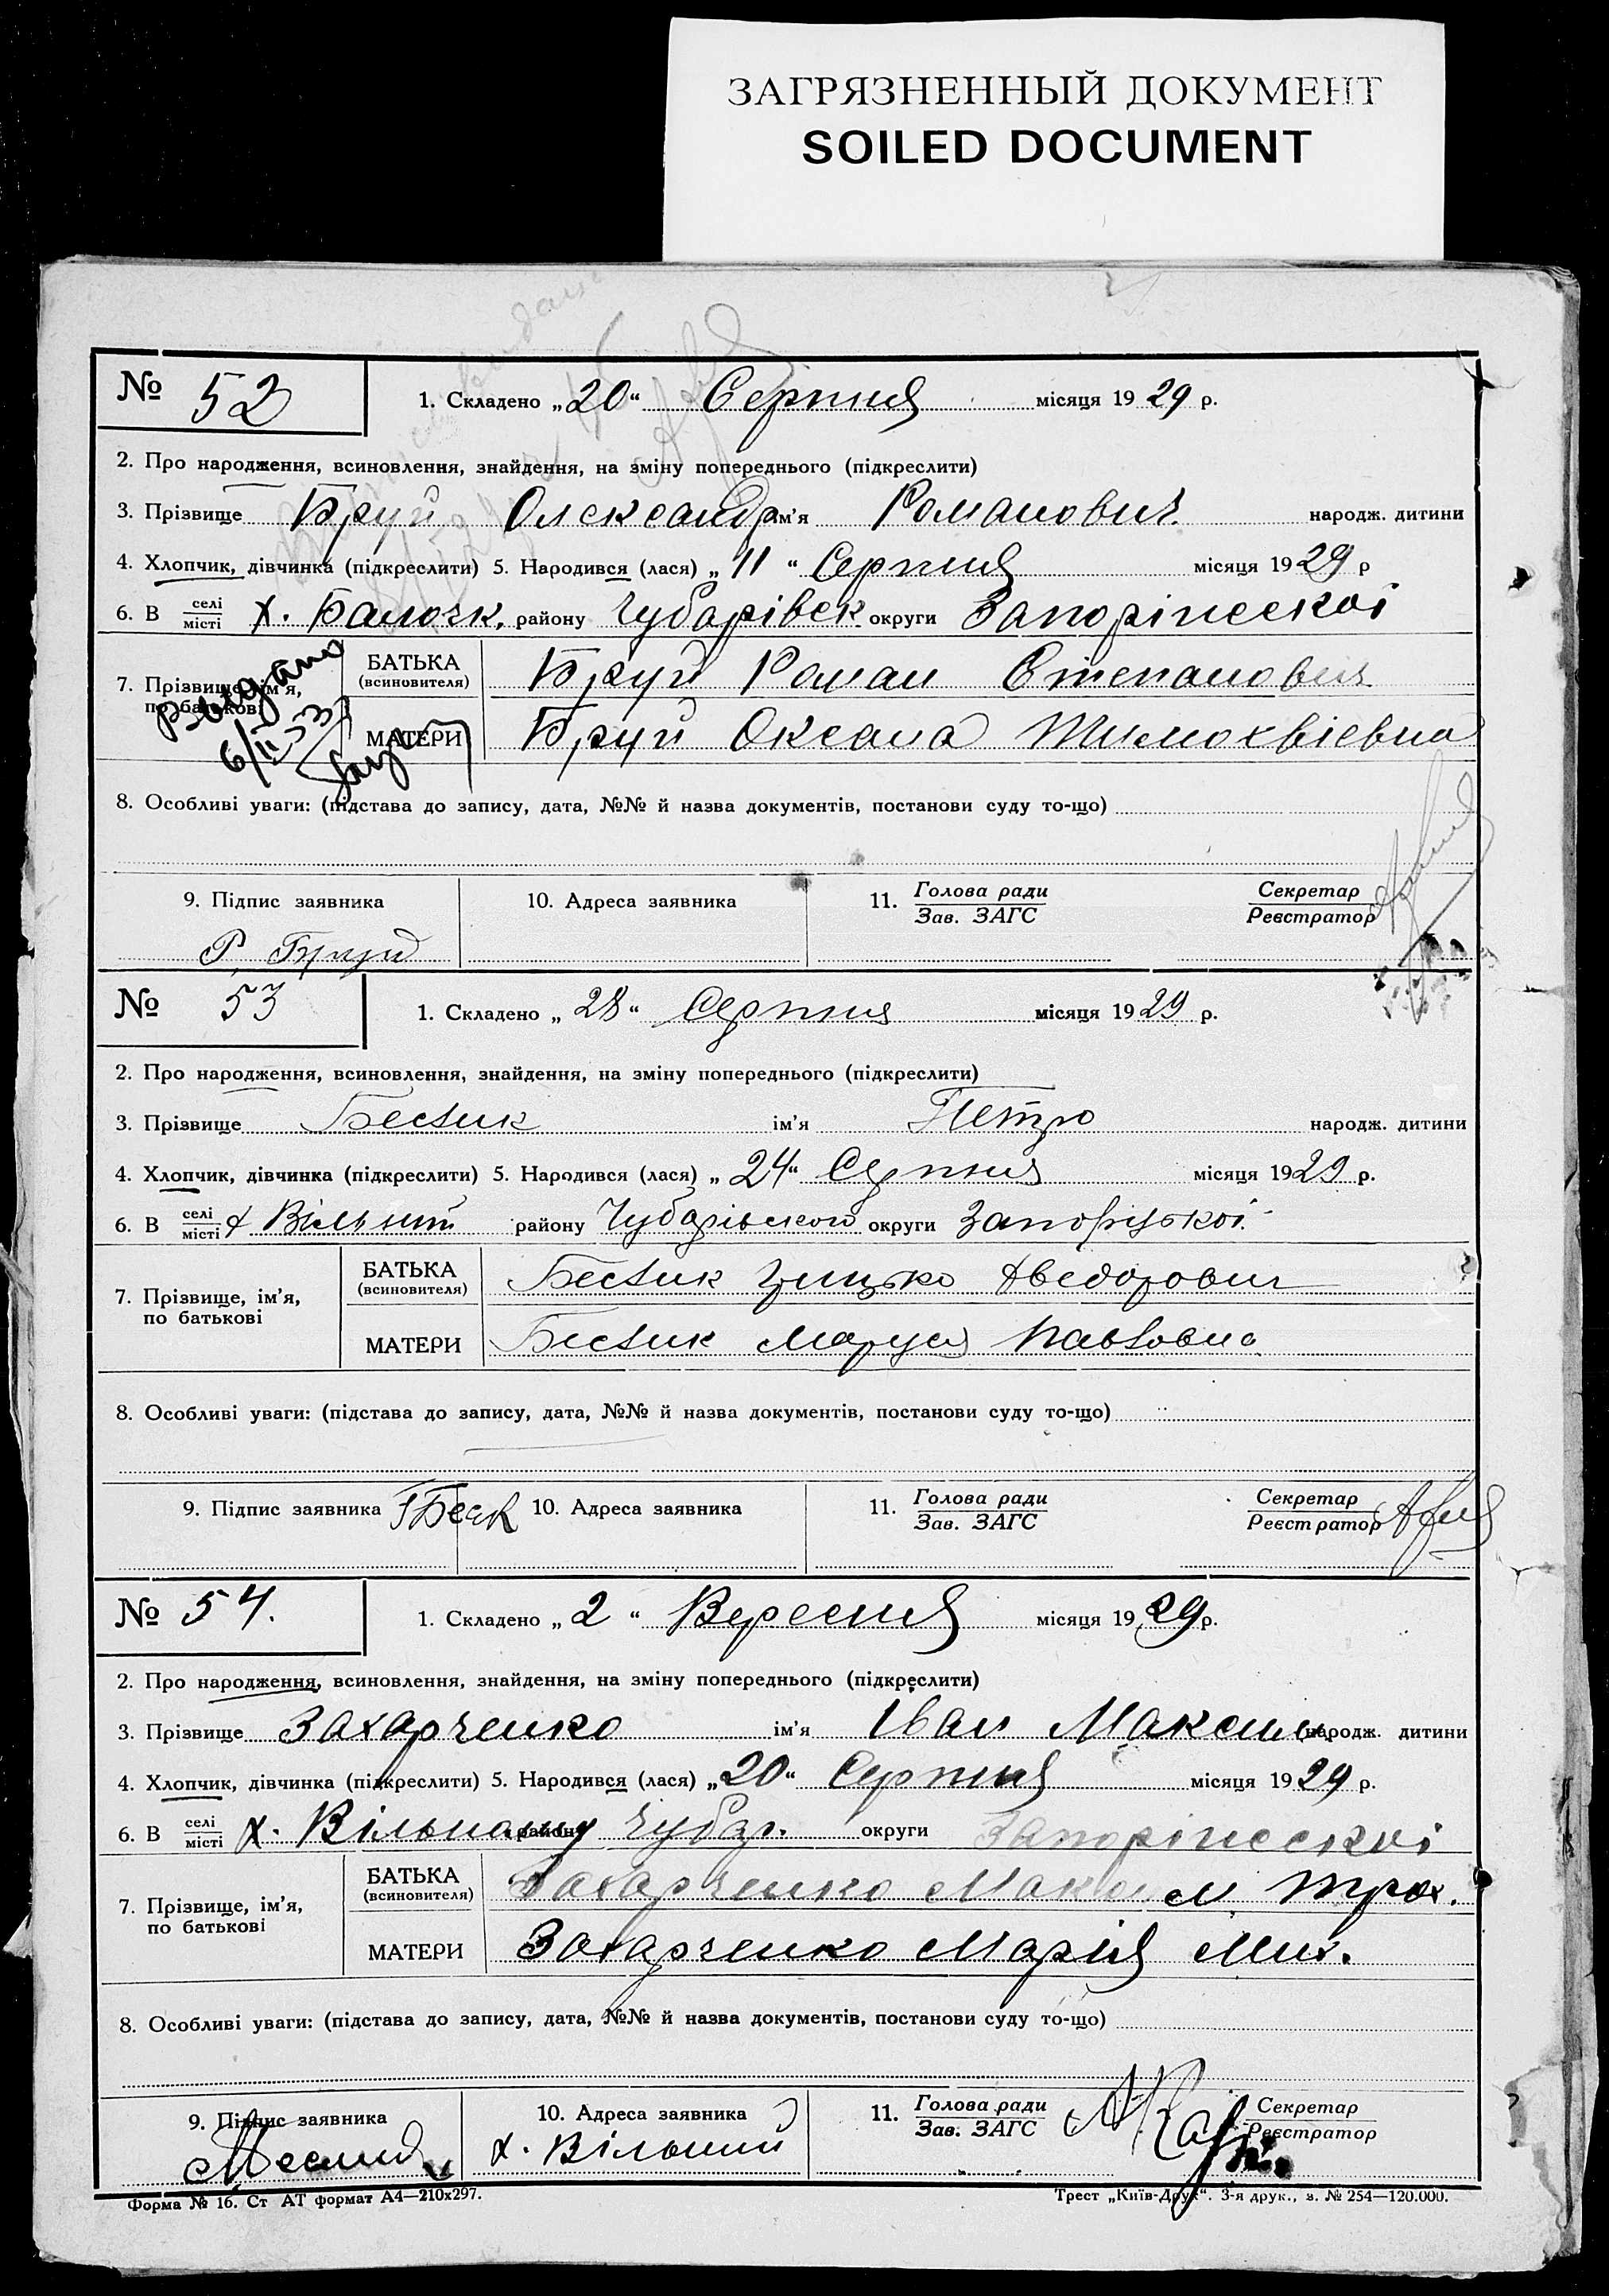 ЗАГРЯЗНЕННЫЙ ДОКУМЕНТ
SOILED DOCUMENT
№ 52
1. Складено „20“ Серпня місяця 1929 р.
2. Про народження, всиновлення, знайдення, на зміну попереднього (підкреслити)
3. Прізвище Бруй Олександр ім’я Романович. народж. дитини
4. Хлопчик, дівчинка (підкреслити) 5. Народився (лася) „11“ Серпня місяця 1929 р
6. В селі/місті х. Балочк. району Чубарівск. округи Запоріжескоі
7. Прізвище, ім’я, по батькові
Видано
6/II 53
БАТЬКА (всиновителя) Бруй Роман Степанович
МАТЕРИ Бруй Оксана Тимохвіевна
8. Особливі уваги: (підстава до запису, дата, №№ й назва документів, постанови суду то-що)
9. Підпис заявника 10. Адреса заявника 11. Голова ради/Зав. ЗАГС Секретар/Реєстратор
Р. Бруй
№ 53
1. Складено „28“ Серпня місяця 1929 р.
2. Про народження, всиновлення, знайдення, на зміну попереднього (підкреслити)
3. Прізвище ім’я Петро народж. дитини
4. Хлопчик, дівчинка (підкреслити) 5. Народився (лася) „24“ Серпня місяця 1929 р.
6. В селі/місті х Вільний району Чубарівского округи Запоріzькоі
7. Прізвище, ім’я, по батькові
БАТЬКА (всиновителя) Грицько Хведорович
МАТЕРИ Маруся Павловна
8. Особливі уваги: (підстава до запису, дата, №№ й назва документів, постанови суду то-що)
9. Підпис заявника 10. Адреса заявника 11. Голова ради/Зав. ЗАГС Секретар/Реєстратор
№ 54.
1. Складено „2“ Вересня місяця 1929 р.
2. Про народження, всиновлення, знайдення, на зміну попереднього (підкреслити)
3. Прізвище Захарченко ім’я Іван Максим. народж. дитини
4. Хлопчик, дівчинка (підкреслити) 5. Народився (лася) „20“ Серпня місяця 1929 р.
6. В селі/місті х. Вільному району Чубар. округи Запоріжескоі
7. Прізвище, ім’я, по батькові
БАТЬКА (всиновителя) Захарченко Максим Трох.
МАТЕРИ Захарченко Марія Мих.
8. Особливі уваги: (підстава до запису, дата, №№ й назва документів, постанови суду то-що)
9. Підпис заявника 10. Адреса заявника 11. Голова ради/Зав. ЗАГС Секретар/Реєстратор
х. Вільний
Форма № 16. Ст АТ формат А4—210х297. Трест „Київ-Друк“. 3-я друк., з. № 254—120.000.